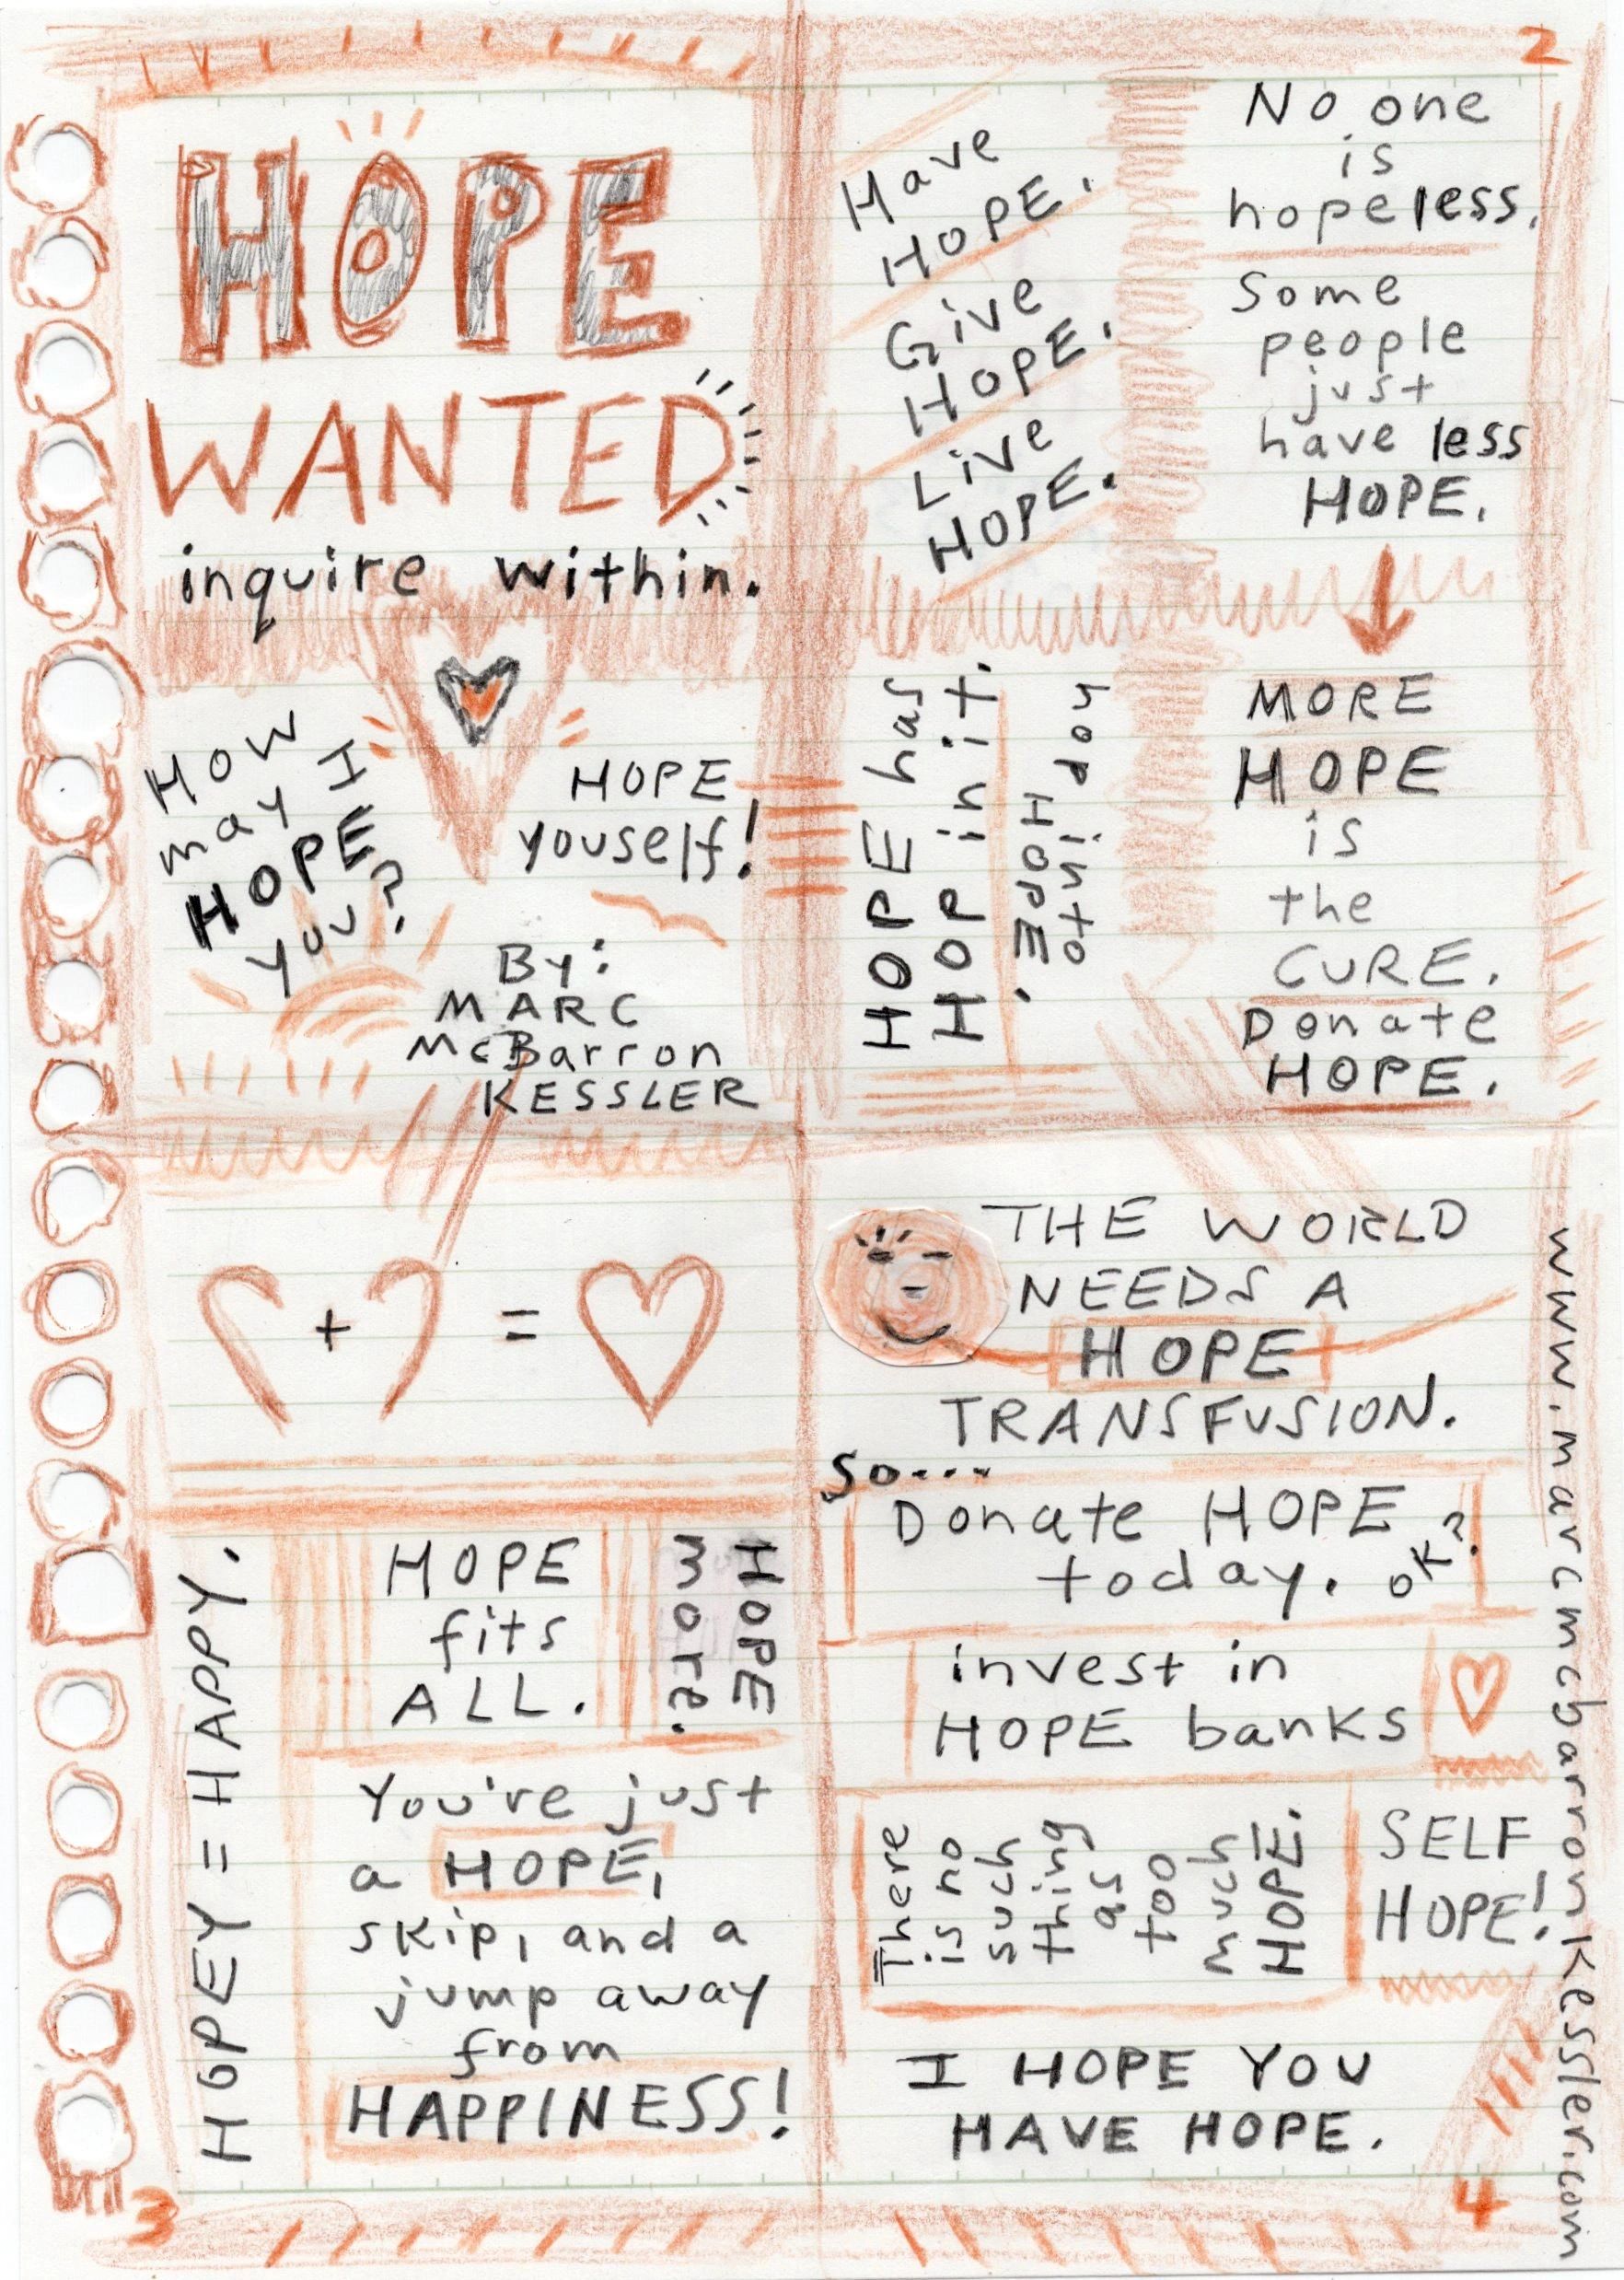 HOPE
WANTED
inquire within.
How
may I
HOPE
you?
HOPE
youself!
By:
MARC
McBarron
KESSLER
2
Have
HOPE.
Give
HOPE.
Live
HOPE.
No one
is
hopeless.
Some
people
just
have less
HOPE.
HOPE has
HOP in it.
hop into
HOPE.
MORE
HOPE
is
the
CURE.
Donate
HOPE.
+ =
HOPEY = HAPPY.
HOPE
fits
ALL.
HOPE
more.
You're just
a HOPE,
skip, and a
jump away
from
HAPPINESS!
3
THE WORLD
NEEDS A
HOPE
TRANSFUSION.
So...
Donate HOPE
today. OK?
invest in
HOPE banks
There
is no
such
thing
as
too
much
HOPE.
SELF
HOPE!
I HOPE YOU
HAVE HOPE.
4
www.marcmcbarronkessler.com